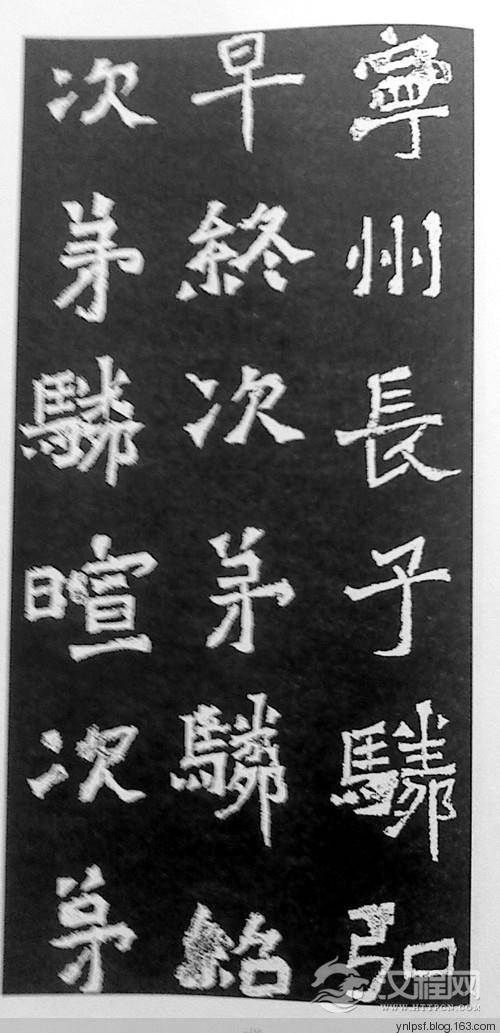 寧州長子驎弘
早終次弟驎紹
次弟驎暄次弟
汉程网
WWW.HTTPCN.COM
ynlpsf.blog.163.com